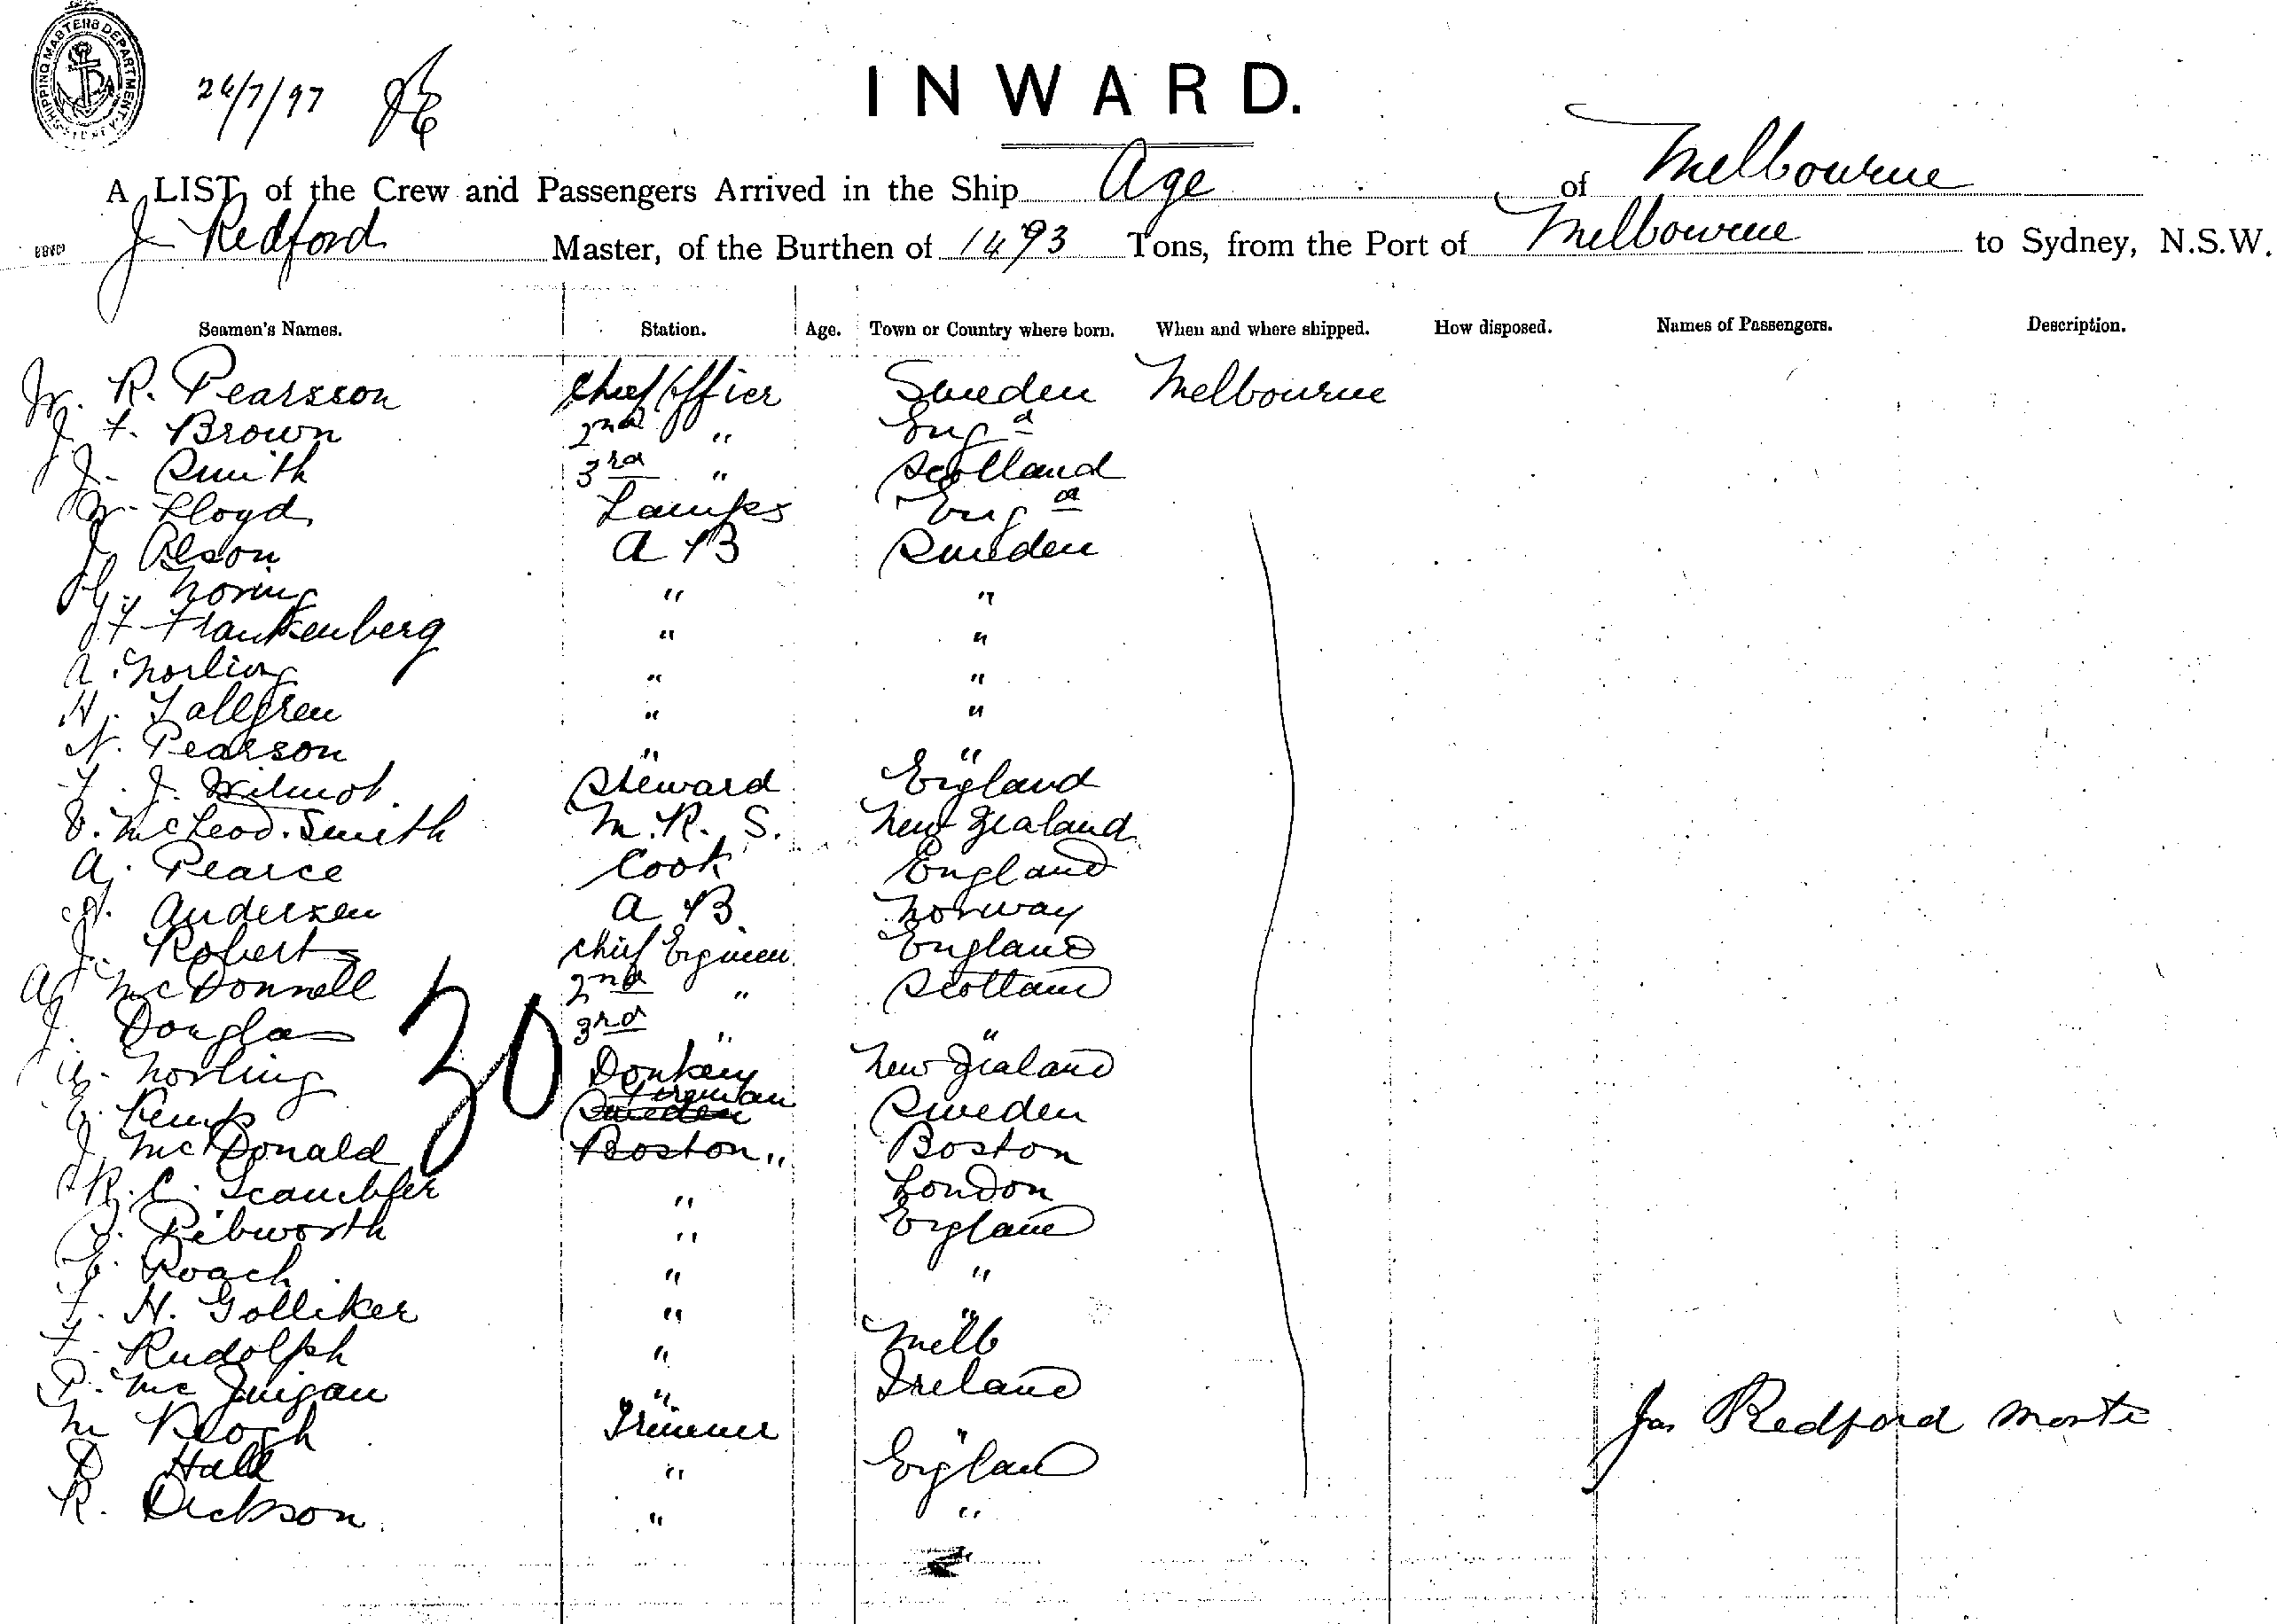 SHIPPING MASTERS DEPARTMENT
26/7/97
INWARD.
A LIST of the Crew and Passengers Arrived in the Ship Age of Melbourne
J Redford Master, of the Burthen of 1493 Tons, from the Port of Melbourne to Sydney, N.S.W.
Seamen's Names. Station. Age. Town or Country where born. When and where shipped. How disposed. Names of Passengers. Description.
R. Pearsson Chief Officer Sweden Melbourne
J. F. Brown 2nd " Engd
J. Smith 3rd " Scotland
Lloyd Lamps Engd
J. Olson A B Sweden
H. Noring " "
Frankenberg " "
A. Norling " "
H. Tallgren " "
N. Pearson " "
F. J. Wilmot. Steward England
McLeod. Smith M. R. S. New Zealand
A. Pearce Cook England
Andersen A B Norway
J. Roberts Chief Engineer England
A McDonnell 2nd " Scotland
J. Douglas 3rd " "
Norling Donkey New Zealand
E. Kemp Sweden Fireman Sweden
J. McDonald Boston " Boston
R. C. " London
Pibworth " England
Roach " "
F. H. Golliker " "
F. Rudolph " Melb
P. McGuigan " Ireland
M Keogh Trimmer "
D Hall " England
R. Dickson " "
30
Jas Redford Master